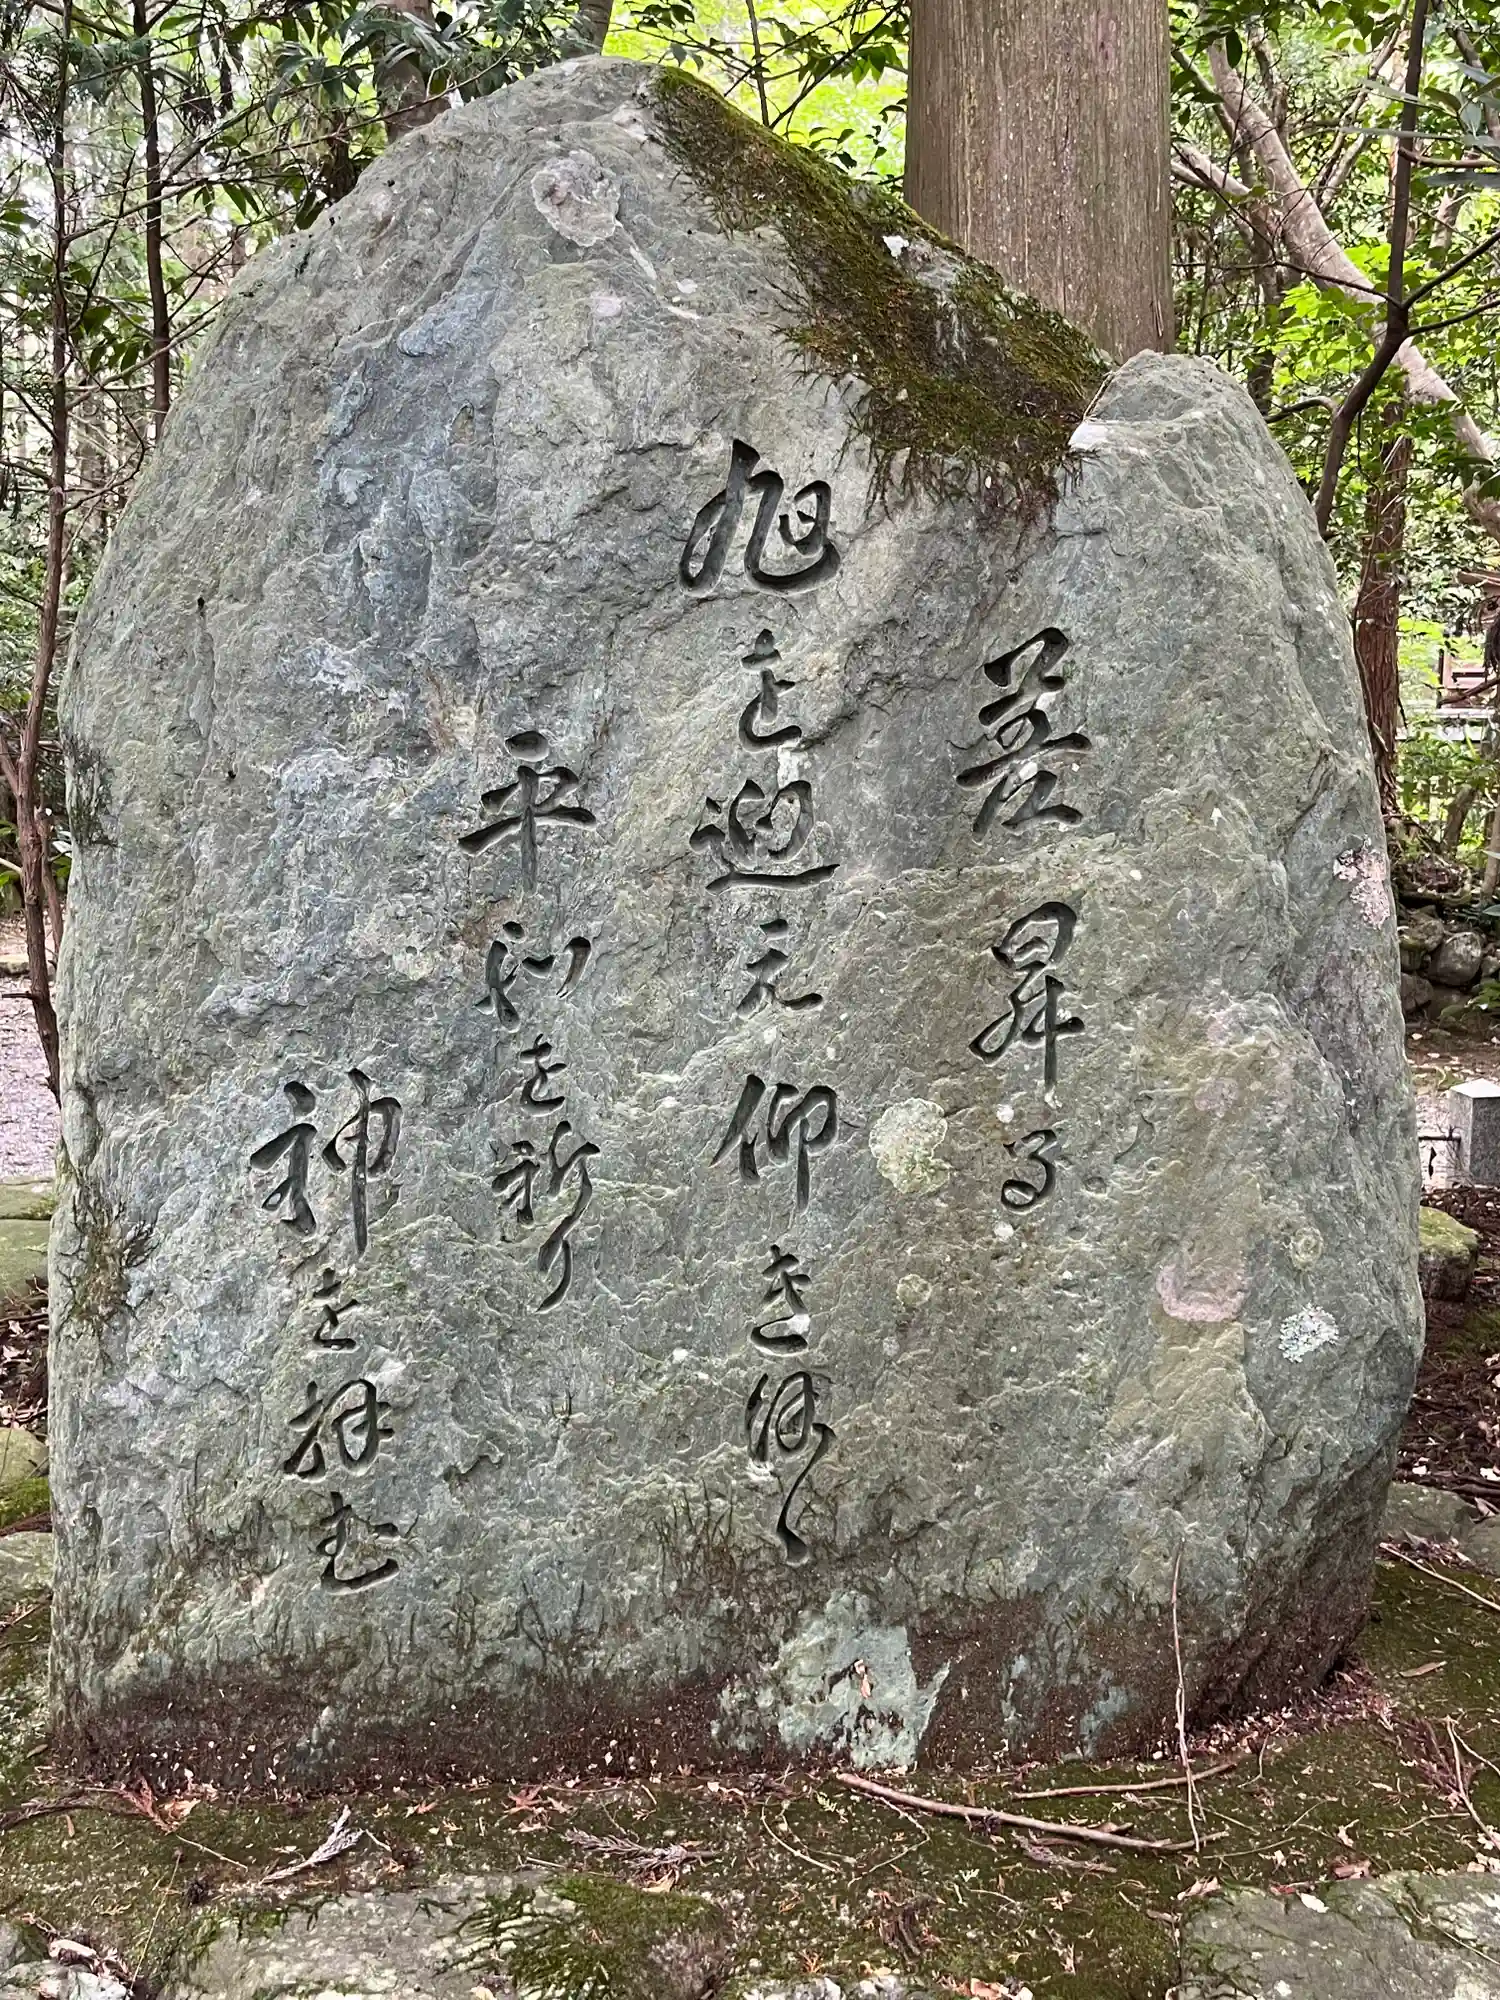 差昇る
旭を迎え仰きつゝ
平和を祈り
神を拝む